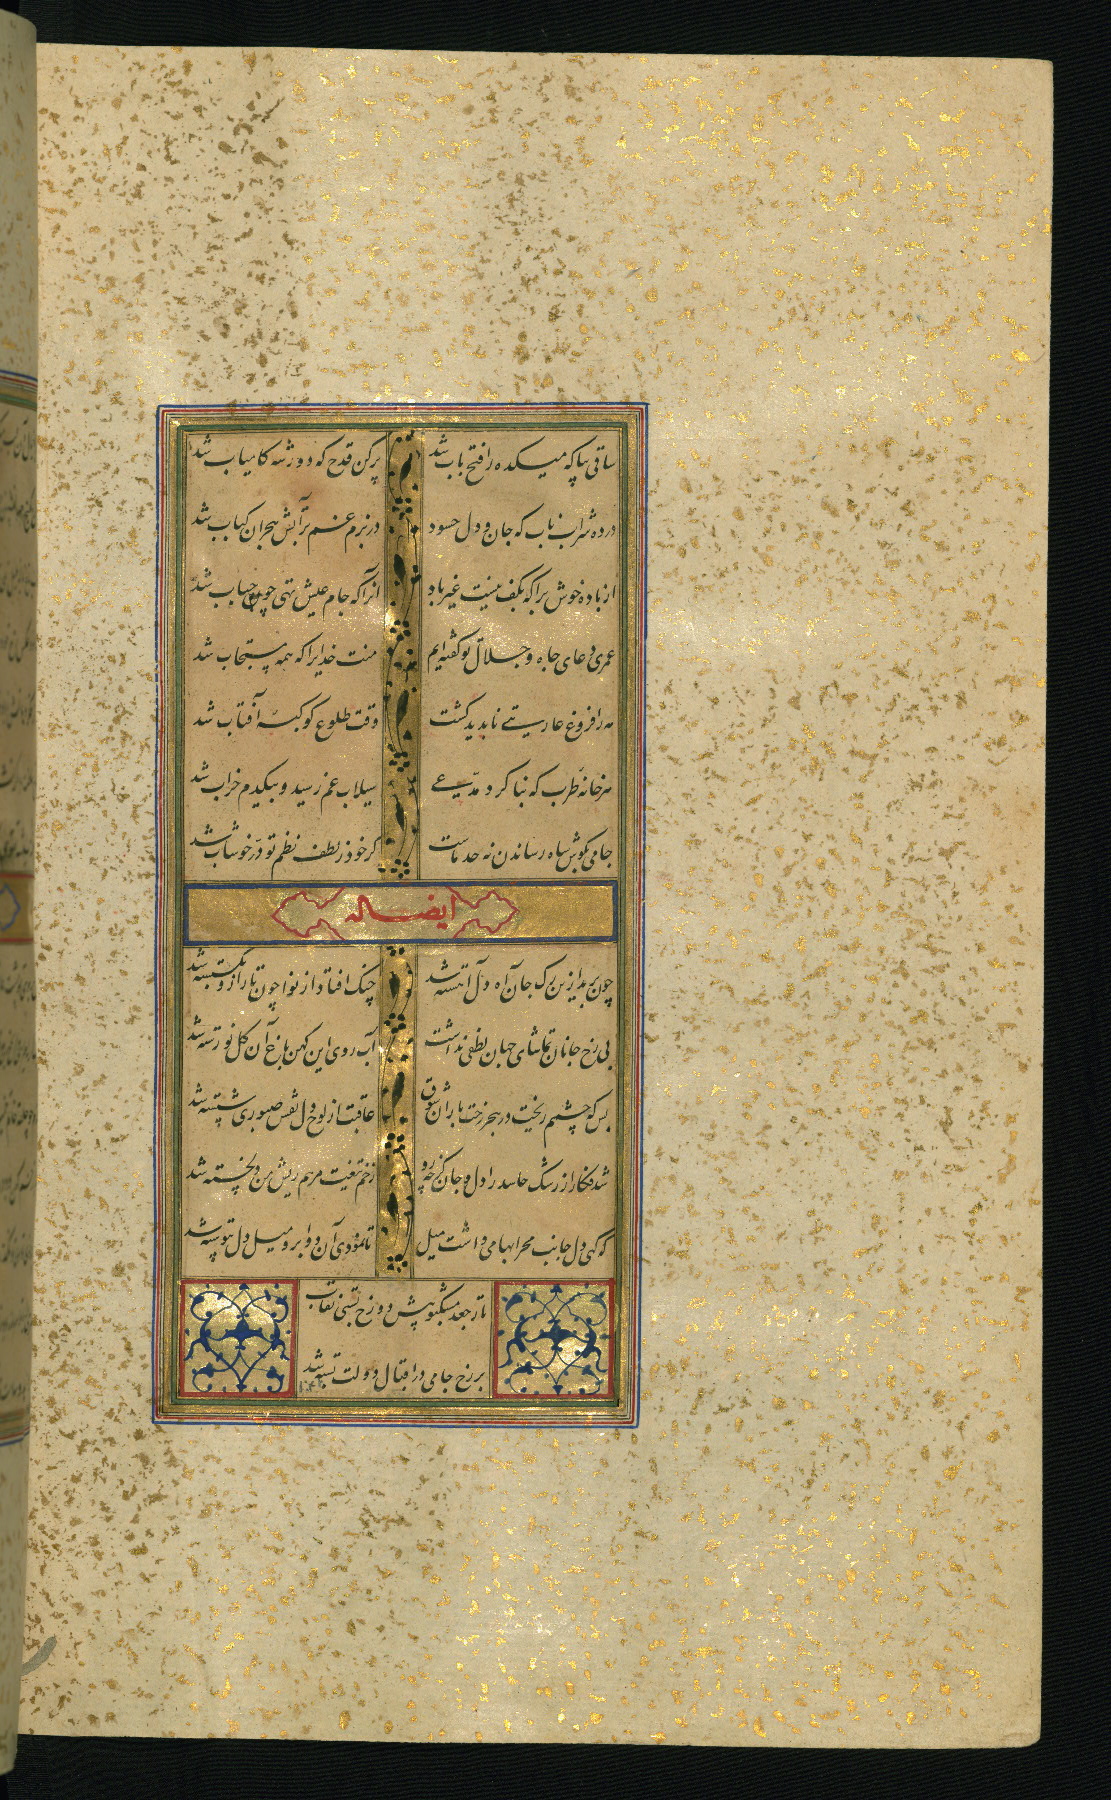 ساقی بیا که میکده را فتح باب شد پرکن قدح که دور شه کامیاب شد
در ده شراب ناب که جان و دل حسود در بزم غم بر آتش هجران کباب شد
از باده خوش برآ که بکف نیست غیر باد آنرا که جام عیش تهی چون حباب شد
عمری دعای جاه و جلال تو گفته ایم منت خدایرا که همه مستجاب شد
مه را فروغ عاریتی ناپدید گشت وقت طلوع کوکبهٔ آفتاب شد
هر خانهٔ طرب که بنا کرد مدعی سیلاب غم رسید و بیکدم خراب شد
جامی بگوش شاه رساندن نه حد ماست گر خود ز لطف نظم تو در خوشاب شد
ایضا له
چون برید از من برگ جان آن آه دل آهسته شد چنگ افتاد از نوا چون تار ازو بگسسته شد
بی رخ جانان تماشای جهان لطفی نداشت آب روی این کهن باغ آن گل نورسته شد
بس که چشمم ریخت در هجر رخت باران شوق عاقبت از لوح دل نقش صبوری شسته شد
شد فکار از رشک حاسد را دل و جان گرچه زو زخم تیغت مرهم ریش من دلخسته شد
گه گهی دل جانب محرابها می داشت میل تا نمودی آن دو ابرو میل دل بتو بسته شد
تا ز جعد مشکبو پیش دو رخ بستی نقاب
بر رخ جامی در اقبال و دولت بسته شد